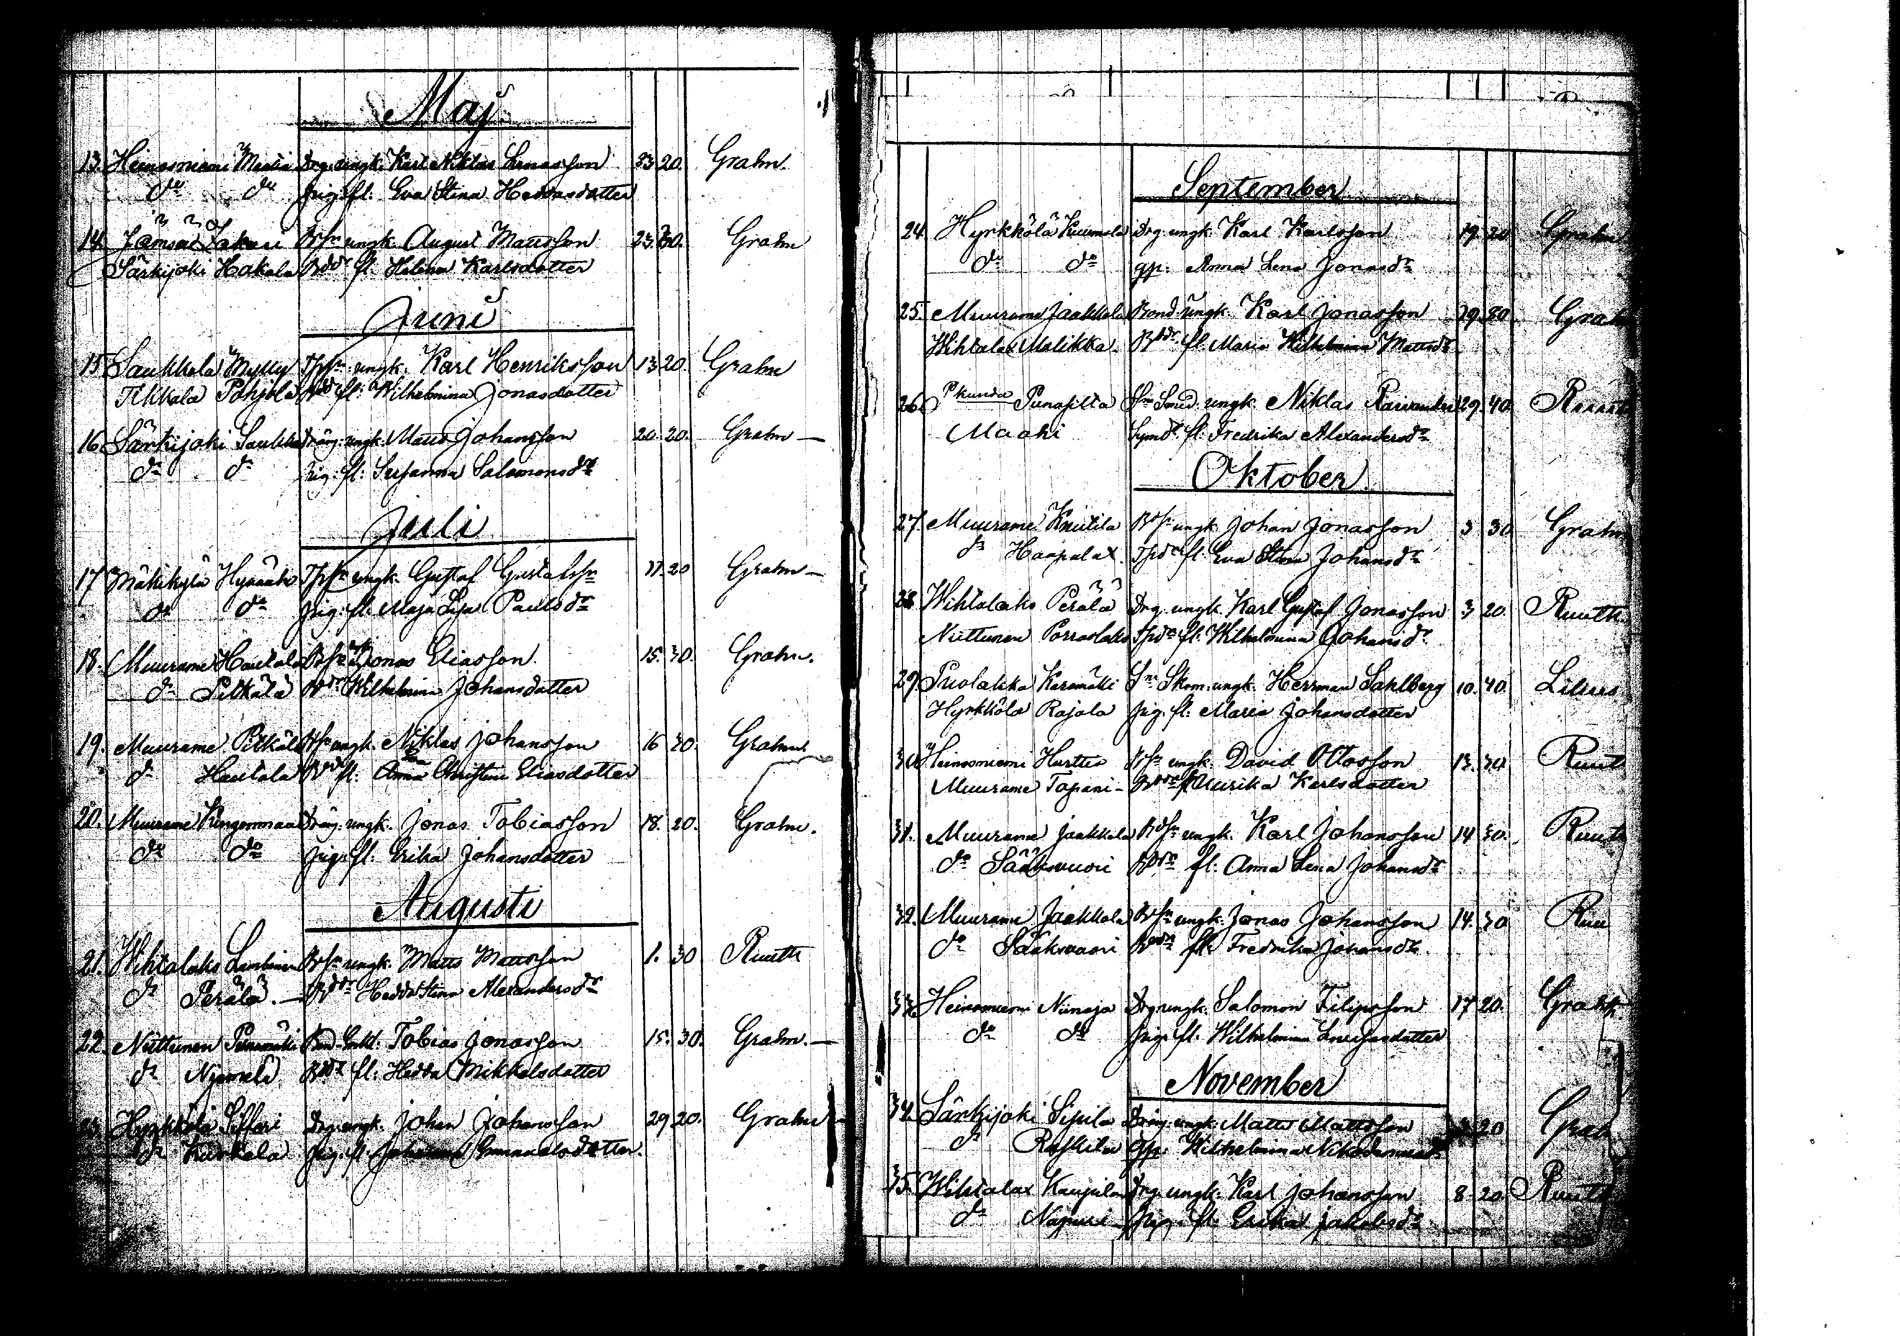 Maj
13. Heinoniemi Mattila Drg. ungk. Karl Niklas Enoksson 23. 20. Grahn.
do do Pig. fl. Eva Stina Heddasdotter
14. Jämsä Jakari Bdsn ungk. August Mattsson 23. 30. Grahn
Särkijoki Hakala Bddr fl. Helena Karlsdotter
Juni
15. Saukkola Mylly Tpsn ungk. Karl Henriksson 13 20. Grahn
Tikkala Pohjola Bddr fl. Wilhelmina Jonasdotter
16. Särkijoki Dräng. ungk. Matts Johansson 20. 20. Grahn —
do do Pig. fl. Susanna Salomonsdr
Juli
17. Mäkikylä Tpsn ungk. Gustaf Gustafssn 11. 20 Grahn —
do do Pig. fl. Maja Lisa Paulsdr
18. Muurame Hautala Bdsn Jonas Eliasson 15. 30. Grahn.
do Pitkälä Bddr Wilhelmina Johansdotter
19. Muurame Pitkälä Bdsn ungk. Niklas Johansson 16 30. Grahn.
do Hautala Bddr fl. Anna Christina Eliasdotter
20. Muurame Kingonmaa Dräng. ungk. Jonas Tobiasson 18. 20. Grahn.
do do Pig. fl. Erika Johansdotter
Augusti
21. Wihtalaks Bdsn ungk. Matts Mattsson 1. 30 Ruuth
do Perälä. — Bddr Hedda Stina Alexandersdr
22. Niittunen Bnd. Enkl. Tobias Jonasson 15. 30. Grahn. —
do Bddr fl. Hedda Mikkelsdotter
23. Hyrkkölä Drg. ungk. Johan Johansson 29 20. Grahn —
do Karkela Pig. fl. Johanna Emanuelsdotter.
September
24. Hyrkkölä Kuusmola Drg. ungk. Karl Karlsson 19. 20 Grahn
do do gp. Anna Lena Jonasdr
25. Muurame Jaakkola Bond. ungk. Karl Jonasson 29. 30. Grah
Wihtalax Malikka. Bddr fl. Maria Wilhelmina Mattsdr
26. Pkunda Punapitta Sn Smed. ungk. Niklas 29. 40. Ruuth
Maaki fl. Fredrika Alexandersdr
Oktober.
27. Muurame Knutila Bdsn ungk. Johan Jonasson 3 30 Grahn
do Haapala Tpdr fl. Eva Stina Johansdr
28. Wihtalaks Perälä Drg. ungk. Karl Gustaf Jonasson 3 20. Ruuth
Niittunen Porraslaks Tpdr fl. Wilhelmina Johansdr
29. Puolakka Karamäki Sn Skom. ungk. Herrman Sahlberg 10. 40. Lilius
Hyrkkölä Rajala Pig. fl. Maria Johansdotter
30. Heinoniemi Hurttia Bdsn ungk. David Ottosson 13. 30 Ruut
Muurame Tapani — Bddr fl. Ulrika Karlsdotter
31. Muurame Jaakkola Bdsn ungk. Karl Johansson 14 30. Ruut
do Sääksvuori Bddr fl. Anna Lena Johansdr
32. Muurame Jaakkola Bdsn ungk. Jonas Johansson 14. 30 Ruu
do Sääksvuori Bddr fl. Fredrika Johansdr.
33. Heinoniemi Niinoja Drg. ungk. Salomon Filipsson 17 20. Grahn
do do Pig. fl. Wilhelmina
November
34. Särkijoki Sipilä Dräng. ungk. Matts Mattsson 20 Grah
do gp. Wilhelmina
35. Wihtalax Kaupila Drg. ungk. Karl Johansson 8. 20. Ruuth
do Napuri — Pig. fl. Erika Jakobsdr